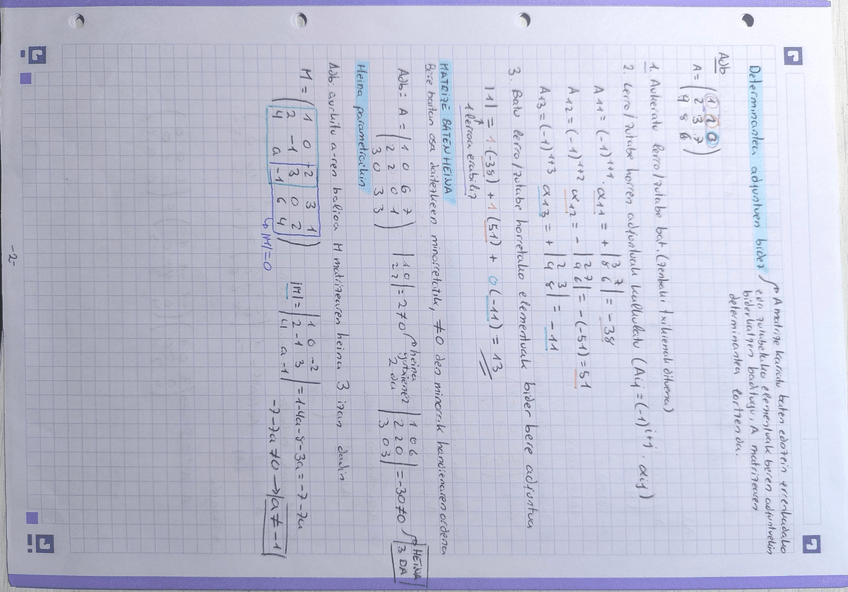 Determinantea adjuntuen bidez
A matrize karratu baten edozein errenkadako
edo zutabetako elementuak beren adjuntuekin
biderkatzen baditugu, A matrizearen
determinantea lortzen da.
Adb
A = (1 1 0
2 3 7
4 8 6)
1. Aukeratu lerro/zutabe bat (zenbaki txikienak dituena)
2. Lerro/zutabe horren adjuntuak kalkulatu (Aij = (-1)^i+j · αij)
A11 = (-1)^1+1 · α11 = + |3 7
8 6| = -38
A12 = (-1)^1+2 α12 = - |2 7
4 6| = -(-51) = 51
A13 = (-1)^1+3 α13 = + |2 3
4 8| = -11
3. Batu lerro/zutabe horretako elementuak bider bere adjuntua
|A| = 1(-38) + 1(51) + 0(-11) = 13
1 lerroa erabiliz
MATRIZE BATEN HEINA
Bere baitan osa daitezkeen minoreetatik, ≠0 den minorrik handienaren ordena
Adb: A = (1 0 6 7
2 2 0 1
3 0 3 3)
|1 0
2 2| = 2≠0
heina
gutxienez
2 du
|1 0 6
2 2 0
3 0 3| = -30≠0
HEINA
3 DA
Heina parametroekin
Adb aurkitu a-ren balioa M matrizearen heina 3 izan dadin
M = (1 0 -2 3 1
2 -1 3 0 2
4 a -1 6 4)
↳ |M|=0
|M| = |1 0 -2
2 -1 3
4 a -1| = 1-4a-8-3a = -7-7a
-7-7a≠0 → a ≠ -1
-2-